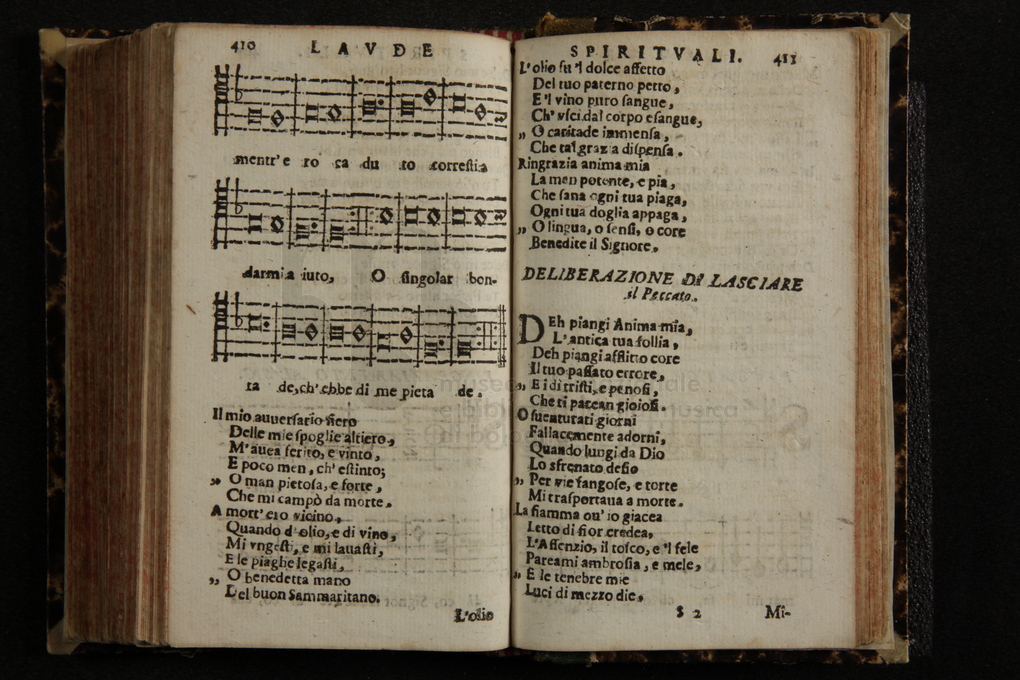 410 LAVDE
mentr' e ro ca du to corresti a
darmi a iuto, O singolar bon-
ta de, ch' ebbe di me pieta de.
Il mio auuersario fiero
Delle mie spoglie altiero,
M' auea ferito, e vinto,
E poco men, ch' estinto;
„ O man pietosa, e forte,
Che mi campò da morte.
A mort' ero vicino,
Quando d' olio, e di vino,
Mi vngesti, e mi lauasti,
E le piaghe legasti,
„ O benedetta mano
Del buon Sammaritano.
L'olio
SPIRITVALI. 411
L' olio fu 'l dolce affetto
Del tuo paterno petto,
E 'l vino puro sangue,
Ch' vsci dal corpo esangue,
„ O caritade immensa,
Che tal grazia dispensa.
Ringrazia anima mia
La man potente, e pia,
Che sana ogni tua piaga,
Ogni tua doglia appaga,
„ O lingua, o sensi, o core
Benedite il Signore.
DELIBERAZIONE DI LASCIARE
il Peccato.
DEh piangi Anima mia,
L' antica tua follia,
Deh piangi afflitto core
Il tuo passato errore,
„ E i di tristi, e penosi,
Che ti parean gioiosi.
O suenturati giorni
Fallacemente adorni,
Quando lungi da Dio
Lo sfrenato desio
„ Per vie fangose, e torte
Mi trasportaua a morte.
La fiamma ou' io giacea
Letto di fior credea,
L'Assenzio, il tosco, e 'l fele
Pareami ambrosia, e mele,
„ E le tenebre mie
Luci di mezzo die,
S 2 Mi-